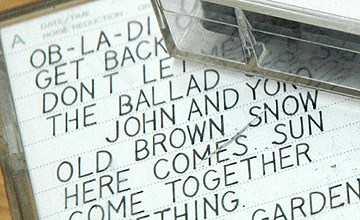 A DATE/TIME
NOISE REDUCTION ON
OB-LA-DI
GET BACK
DON'T LET
THE BALLAD
JOHN AND YOKO
OLD BROWN SNOW
HERE COMES SUN
COME TOGETHER
SOMETHING
GARDEN